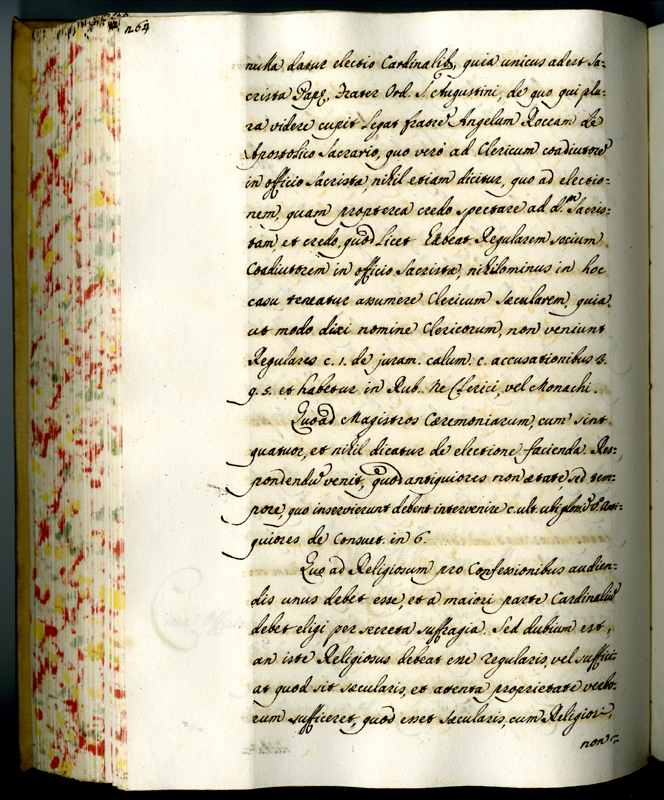 264
nulla datur electio Cardinalib, quia unicus adest Sa-
crista Papę, Frater Ord. S. Augustini, de quo qui plu-
ra videre cupit Legat fratrē Angelum Roccam de
Apostolico Sacrario, quo verò ad Clericum coadiutorē
in officio Sacristæ, nihil etiam dicitur, quo ad electio-
nem, quam propterea credo spectare ad d.m Sacris-
tam, et credo, quod licet habeat Regularem socium
Coadiutorem in officio Sacristæ, nihilominus in hoc
casu teneatur assumere Clericum sæcularem, quia
ut modo dixi nomine Clericorum, non veniunt
Regulares c. 1. de juram. calum. c. accusationibus 2.
q. 5. et habetur in Rub. Ne Clerici, vel Monachi.
Quo ad Magistros Cæremoniarum, cum sint
quatuor, et nihil dicatur de electione facienda. Res-
pondendū venit, quod antiquiores non ætate, sed tem-
pore, quo inservierunt debent intervenire c. ult. ubi V. Anti-
quiores de Consuet. in 6.
Quo ad Religiosum pro Confessionibus audien-
dis unus debet esse, et a maiori parte Cardinaliū
debet eligi per secreta suffragia. Sed dubium est,
an iste Religiosus debeat esse regularis, vel suffici-
at quod sit sæcularis, et attenta proprietate verbo-
rum sufficeret, quod esset sæcularis, cum Religiosi,
non-